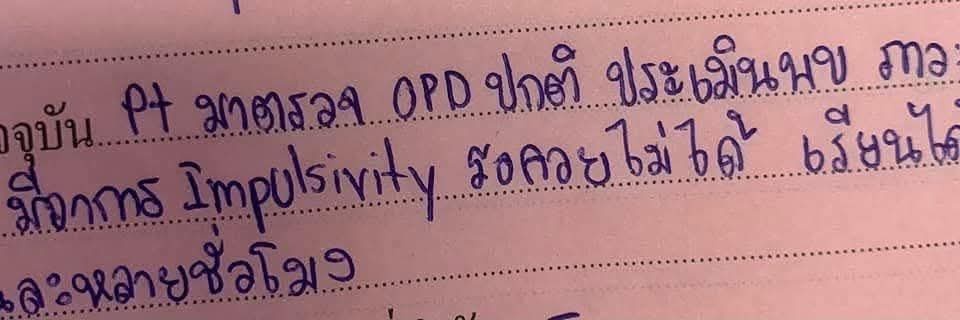 จจุบัน Pt มาตรวจ OPD ปกติ ประเมินพบ ภาวะ
มีอาการ Impulsivity รอคอยไม่ได้ เรียนได้
ละหลายชั่วโมง